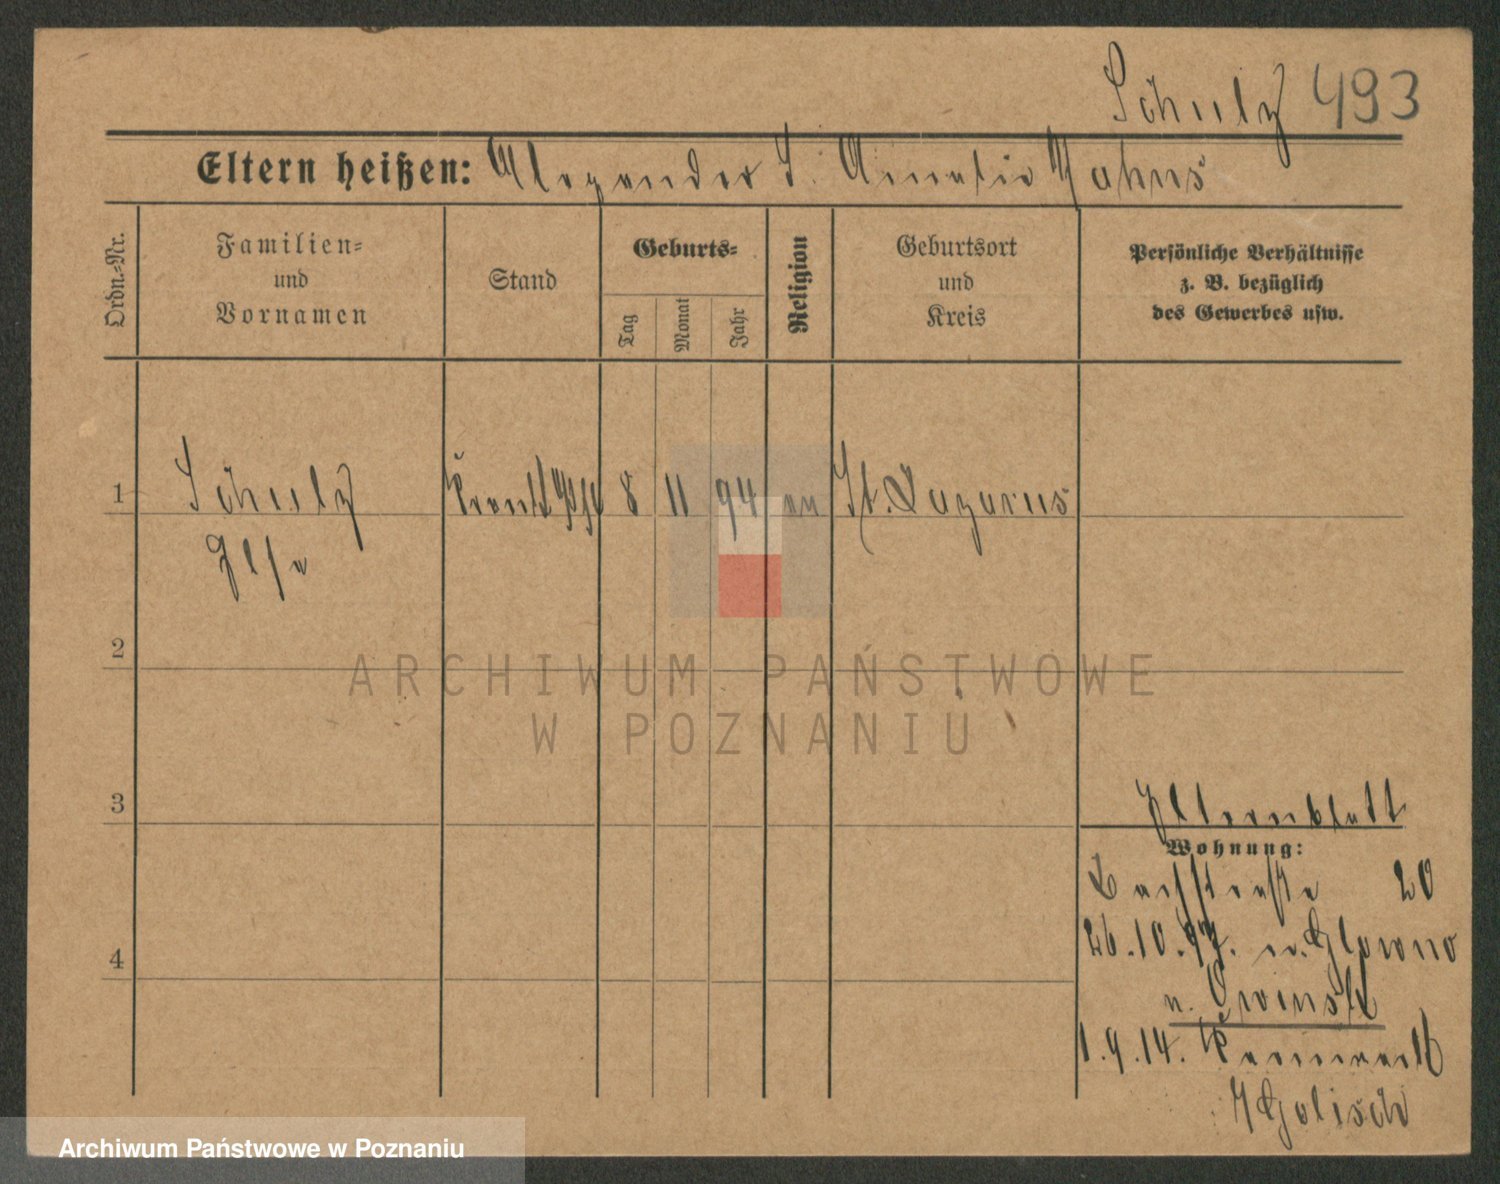 Schulz 493
Eltern heißen: Alexander S. Amalie Hahns
Ordn.=Nr.
Familien=
und
Vornamen
Stand
Geburts=
Tag
Monat
Jahr
Religion
Geburtsort
und
Kreis
Persönliche Verhältnisse
z. B. bezüglich
des Gewerbes usw.
1 Schulz 8 11 94 ev St. Lazarus
Else
2
ARCHIWUM PAŃSTWOWE
W POZNANIU
3
Elternblatt
Wohnung:
20
4
26.10.97. n. Glowno
n. Owinsk
1.9.14.
Golisch
Archiwum Państwowe w Poznaniu